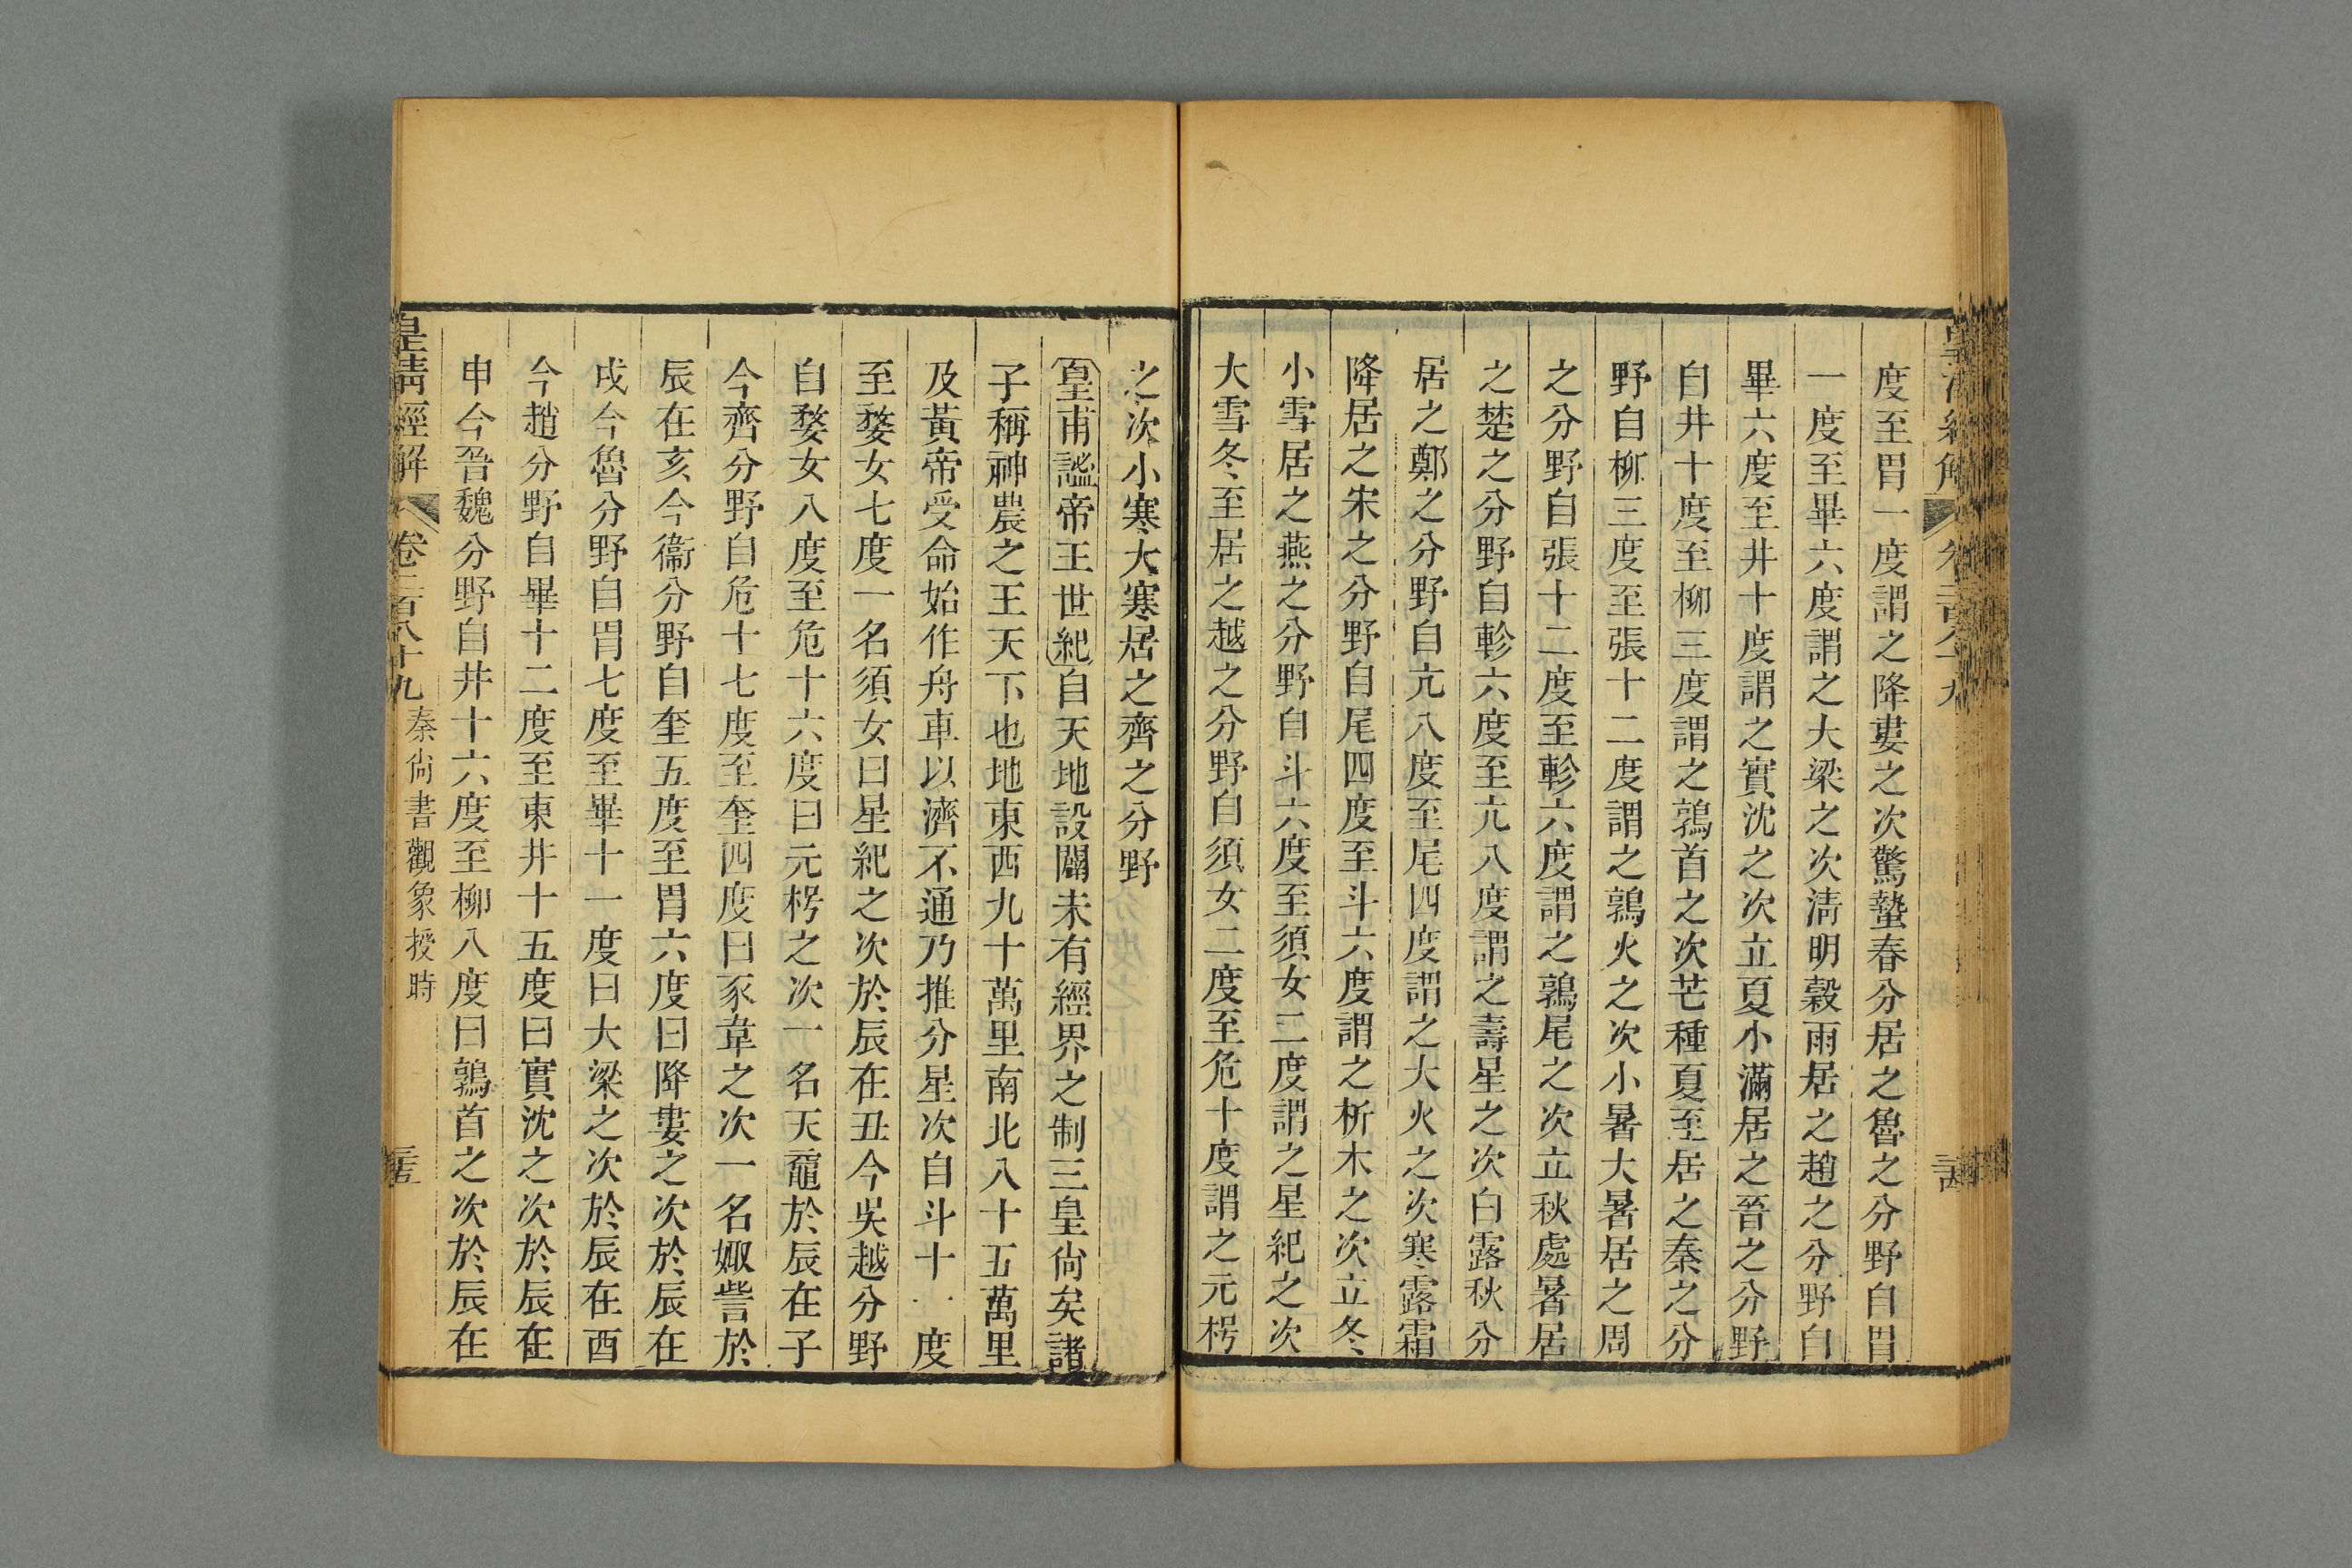 度至胃一度謂之降婁之次驚蟄春分居之魯之分野自胃
一度至畢六度謂之大梁之次淸明穀雨居之趙之分野自
畢六度至井十度謂之實沈之次立夏小滿居之晉之分野
自井十度至柳三度謂之鶉首之次芒種夏至居之秦之分
野自柳三度至張十二度謂之鶉火之次小暑大暑居之周
之分野自張十二度至軫六度謂之鶉尾之次立秋處暑居
之楚之分野自軫六度至亢八度謂之壽星之次白露秋分
居之鄭之分野自亢八度至尾四度謂之大火之次寒露霜
降居之宋之分野自尾四度至斗六度謂之析木之次立冬
小雪居之燕之分野自斗六度至須女二度謂之星紀之次
大雪冬至居之越之分野自須女二度至危十度謂之元枵
之次小寒大寒居之齊之分野
皇甫謐帝王世紀自天地設闢未有經界之制三皇尙矣諸
子稱神農之王天下也地東西九十萬里南北八十五萬里
及黃帝受命始作舟車以濟不通乃推分星次自斗十度
至婺女七度一名須女曰星紀之次於辰在丑今吳越分野
自婺女八度至危十六度曰元枵之次一名天黿於辰在子
今齊分野自危十七度至奎四度曰豕韋之次一名娵訾於
辰在亥今衞分野自奎五度至胃六度曰降婁之次於辰在
戌今魯分野自胃七度至畢十一度曰大梁之次於辰在酉
今趙分野自畢十二度至東井十五度曰實沈之次於辰在
申今晉魏分野自井十六度至柳八度曰鶉首之次於辰在
皇淸經解 卷二百八十九 秦尙書觀象授時 二十五